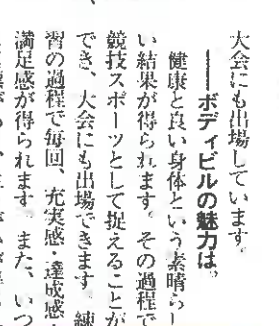 大会にも出場しています。
――ボディビルの魅力は。
健康と良い身体という素晴らし
い結果が得られます。その過程で
競技スポーツとして捉えることが
でき、大会にも出場できます。練
習の過程で毎回、充実感・達成感・
満足感が得られます。また、いつ